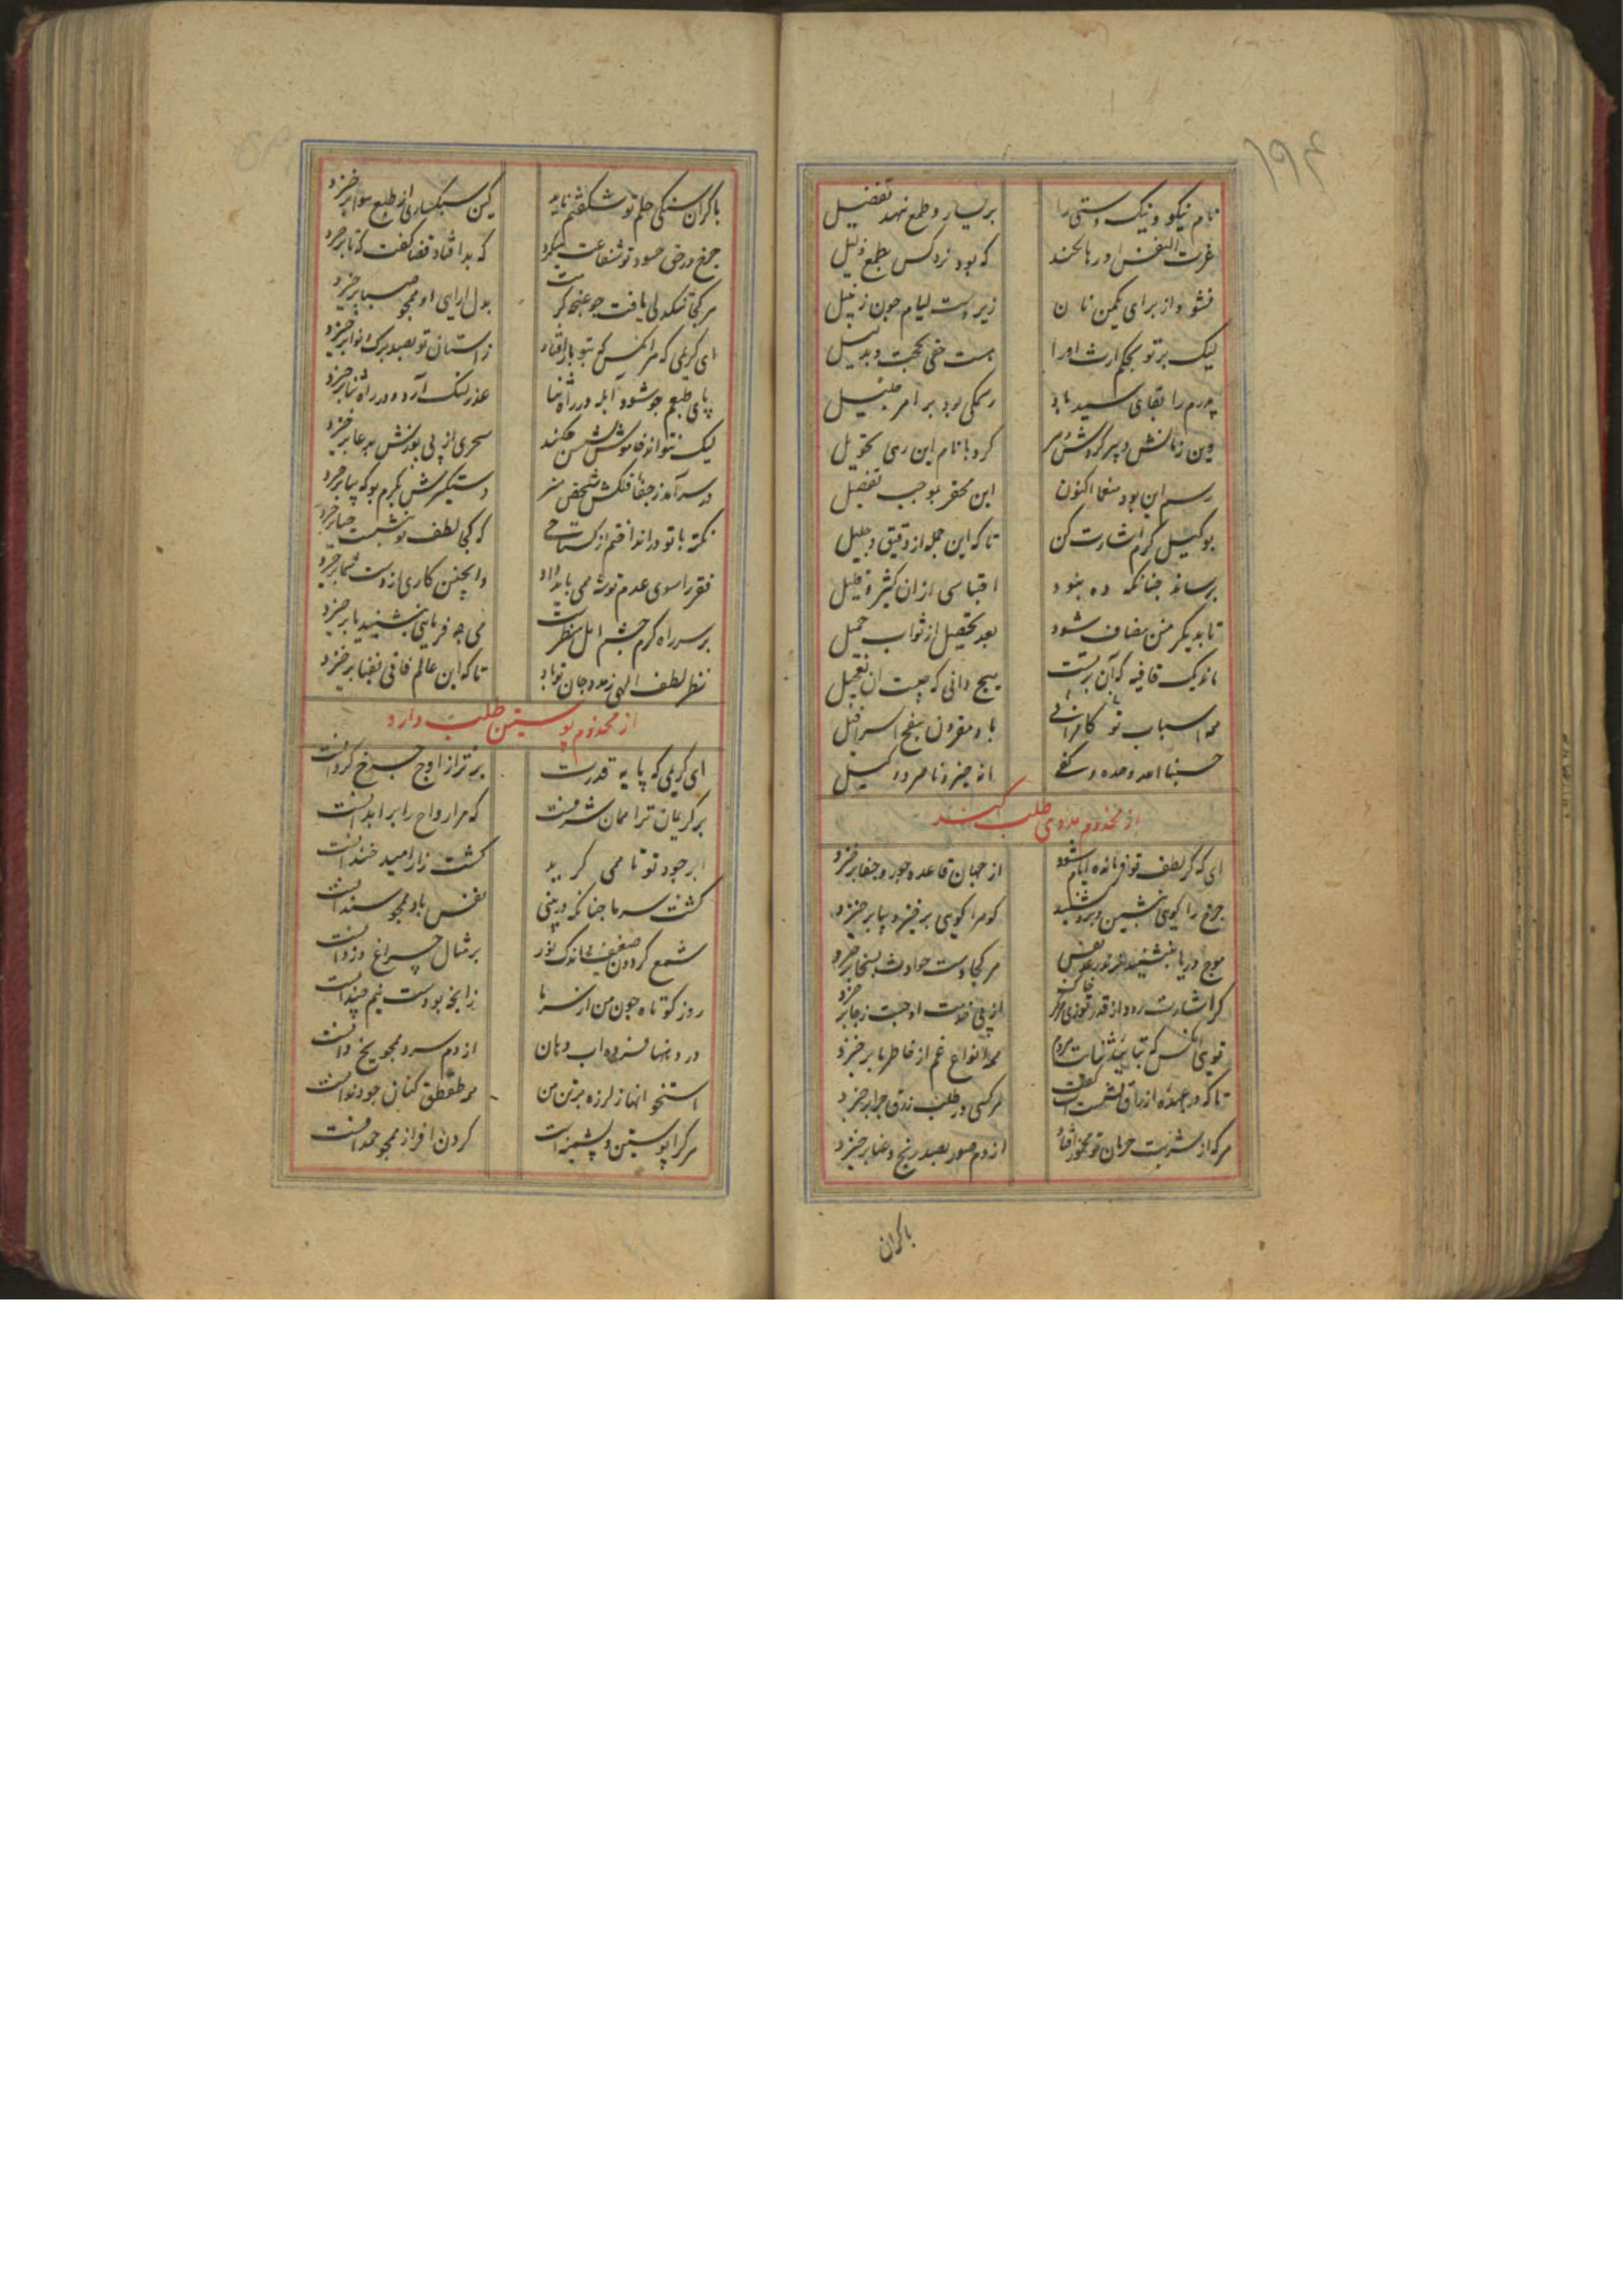 ۱۹۴
نام نیکو و نیک دستی را بر یسار و طمع نهد تفضیل
عزت النفس او رها نکند که بود نزد کس بطمع ذلیل
نشود از برای یکمن نان زیر دست لیام چون زنبیل
لیک بر تو بحکم ارث او را هست حقی بحجت و دلیل
پدرم را بقای سید باد رسمکی بود بر امر جلیل
وین زمانش سپهر گردش کرد با نام این رهی تحویل
رسم این بود منعما اکنون این محقر بموجب تفصیل
بوکیل کرم اشارت کن تا که این جمله از دقیق و جلیل
برساند چنانکه ده بنود اقتباسی ازان کثیر و قلیل
تا بدیگر منن مضاف شود بعد تحصیل از ثواب جمیل
ماند یک قافیه که آن بر تست هیچ دانی که چیست آن تعجیل
همه اسباب تو کامرانی باد مقرون بنفخ اسرافیل
حسبنا الله وحده و کفی انه خیر ناصر و وکیل
از مخدوم مددی طلب کند
ای که گر لطف تو فرمانده ایام شود از جهان قاعده جور و جفا برخیزد
چرخ را گویی بنشین و برو بنشیند کوه را گویی برخیز و بپا برخیزد
موج دریا بنشیند هر کجا دست حوادث بسخا برخیزد
گر اشارت رود از قدر تو از پی خدمت او جست ز جا برخیزد
تویی آنکس که همه انواع غم از خاطر ما برخیزد
تا که در عهده ارزاق هر کسی در طلب رزق چرا برخیزد
هر که از شربت حرمان تو مخمور افتاد از دم صور بصد رنج و عنا برخیزد
باکران
باکران سنگی حلم تو شگفتم ناید کین سبکساری از طبع هوا برخیزد
چرخ در حق حسود تو شفاعت میکرد که بد افتاد قضا گفت که تا برخیزد
هر کجا تنگدلی یافت چو غنچه کرمت بدل آرایی او همچو صبا برخیزد
ای کریمی که هر آنکس که بتو بار افتاد ز آستان تو بصد برگ و نوا برخیزد
پای طبعم چو شود آبله در راه ثنا عذر لنگ آرد و در راه ثنا برخیزد
لیک نتواند خاموش نشستن چکند سحری از پی پوزش بدعا برخیزد
در سر آمد ز جفا فلکش شخص هنر دستگیرش بکرم بو که بپا برخیزد
نکته با تو در انداختم از گستاخی که کجا لطف تو بنشست حیا برخیزد
فقر را سوی عدم توشه همی باید داد و اینچنین کاری از دست شما برخیزد
بر سر راه کرم چشم امل منتظرست می چه فرمایی بنشیند یا برخیزد
نظر لطف الهی مدد جان تو باد تا که این عالم فانی بفنا برخیزد
از مخدوم پوستین طلب دارد
ای کریمی که پایه قدرت برتر از اوج چرخ گردانست
بر کریمان ترا همان شرفست که مر ارواح را بر ابدانست
ابر جود تو تا همی گرید کشت زار امید خندانست
گشت سرما چنانکه در بینی نفس باد همچو سندانست
شمع گردون ضعیف و اندک نور بر مثال چراغ دزدانست
روز کوتاه چون من از سرما زانچه بودست نیم چندانست
در دهنها فسرده آب دهان از دم سرد همچو یخ دانست
استخوانها ز لرزه بر تن من طقطق کنان چو دندانست
هر کرا پوستین و پشمین است گردن افراز همچو حمدانست